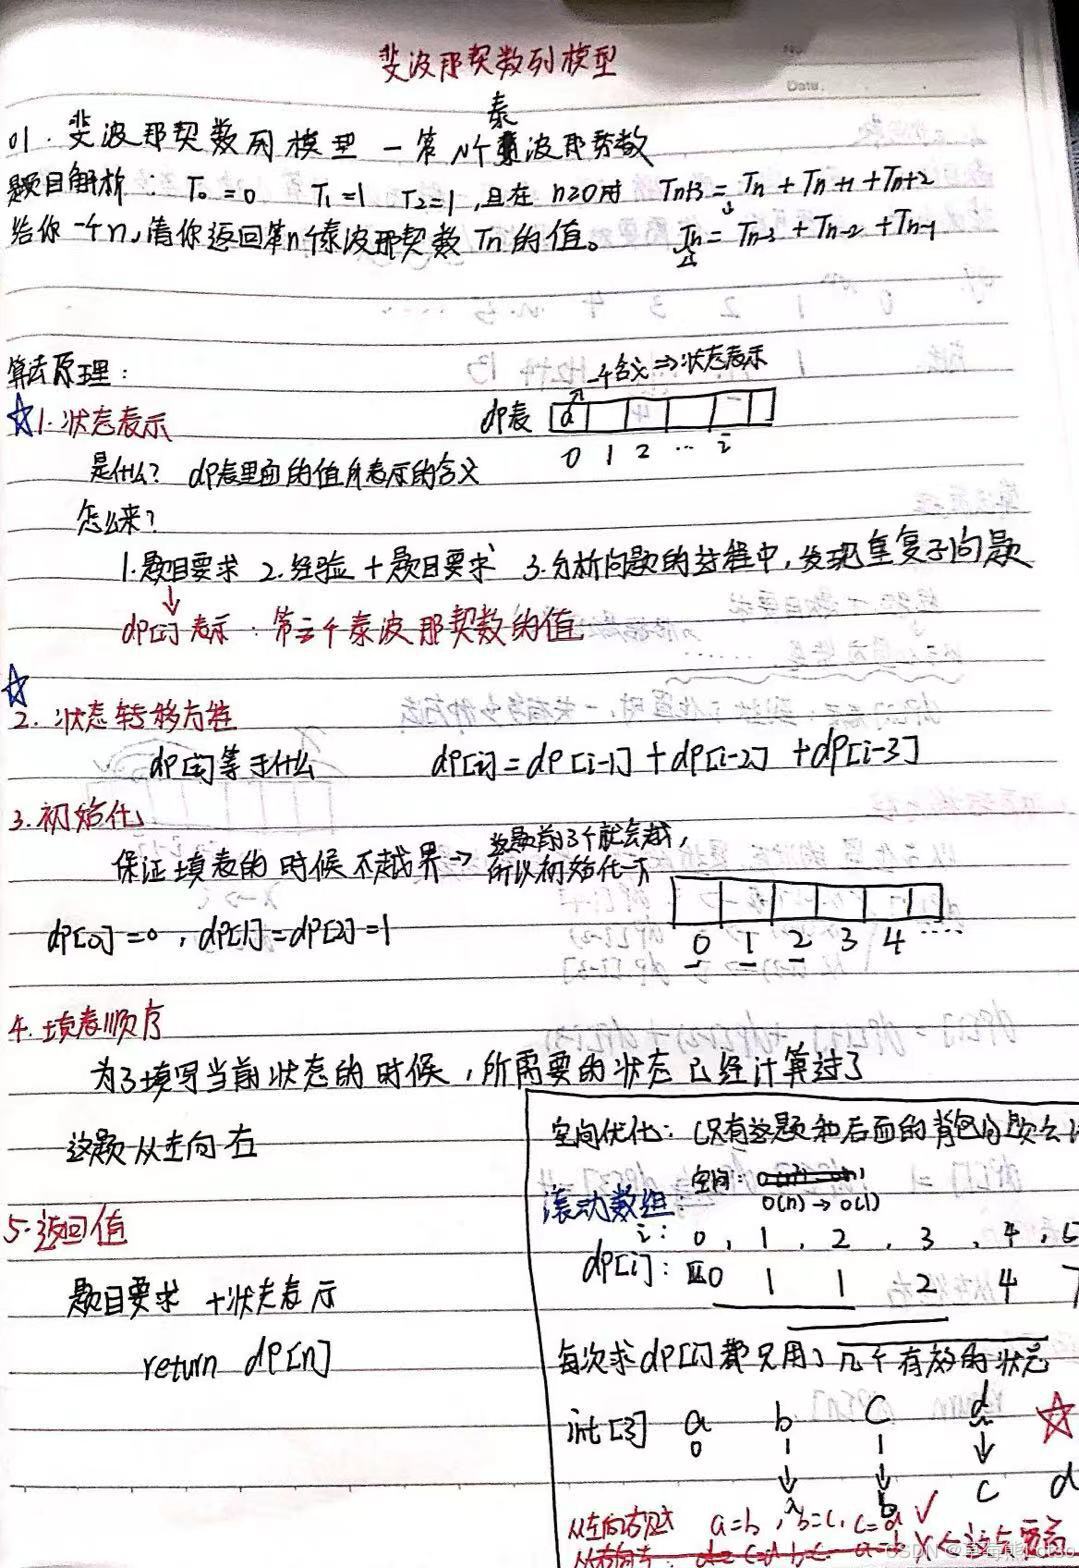 斐波那契数列模型
Date.
01. 斐波那契数列模型 — 第N个泰波那契数
题目解析: T₀=0 T₁=1 T₂=1, 且在 n≥0时 Tn+3 = Tn + Tn+1 + Tn+2
给你一个n,请你返回第n个泰波那契数 Tn 的值。 Tn = Tn-3 + Tn-2 + Tn-1
算法原理:
一个含义 ⇒ 状态表示
☆1. 状态表示 dp表
0 1 2 … i
是什么? dp表里面的值所表示的含义
怎么来?
1.题目要求 2.经验+题目要求 3.分析问题的过程中,发现重复子问题
↓
dp[i]表示: 第i个泰波那契数的值
☆
2. 状态转移方程
dp[i]等于什么 dp[i] = dp[i-1] + dp[i-2] + dp[i-3]
3. 初始化
保证填表的时候不越界→ 这题前3个就会越,
所以初始化一下
dp[0]=0, dp[1]=dp[2]=1
0 1 2 3 4 ....
4. 填表顺序
为了填写当前状态的时候,所需要的状态已经计算过了
这题从左向右
空间优化: (只有这题和后面的背包问题会
空间:
O(n) → O(1)
滚动数组:
i: 0, 1, 2, 3, 4, 5
dp[i]: 0 1 1 2 4 7
5. 返回值
题目要求 + 状态表示
return dp[n]
每次求dp[i]都只用了几个有效的状态
int[3] a b c d ☆
0 1 1 ↓
↓ ↓ c d
a b
从左向右 a=b, b=c, c=d ✓
从右向左
CSDN